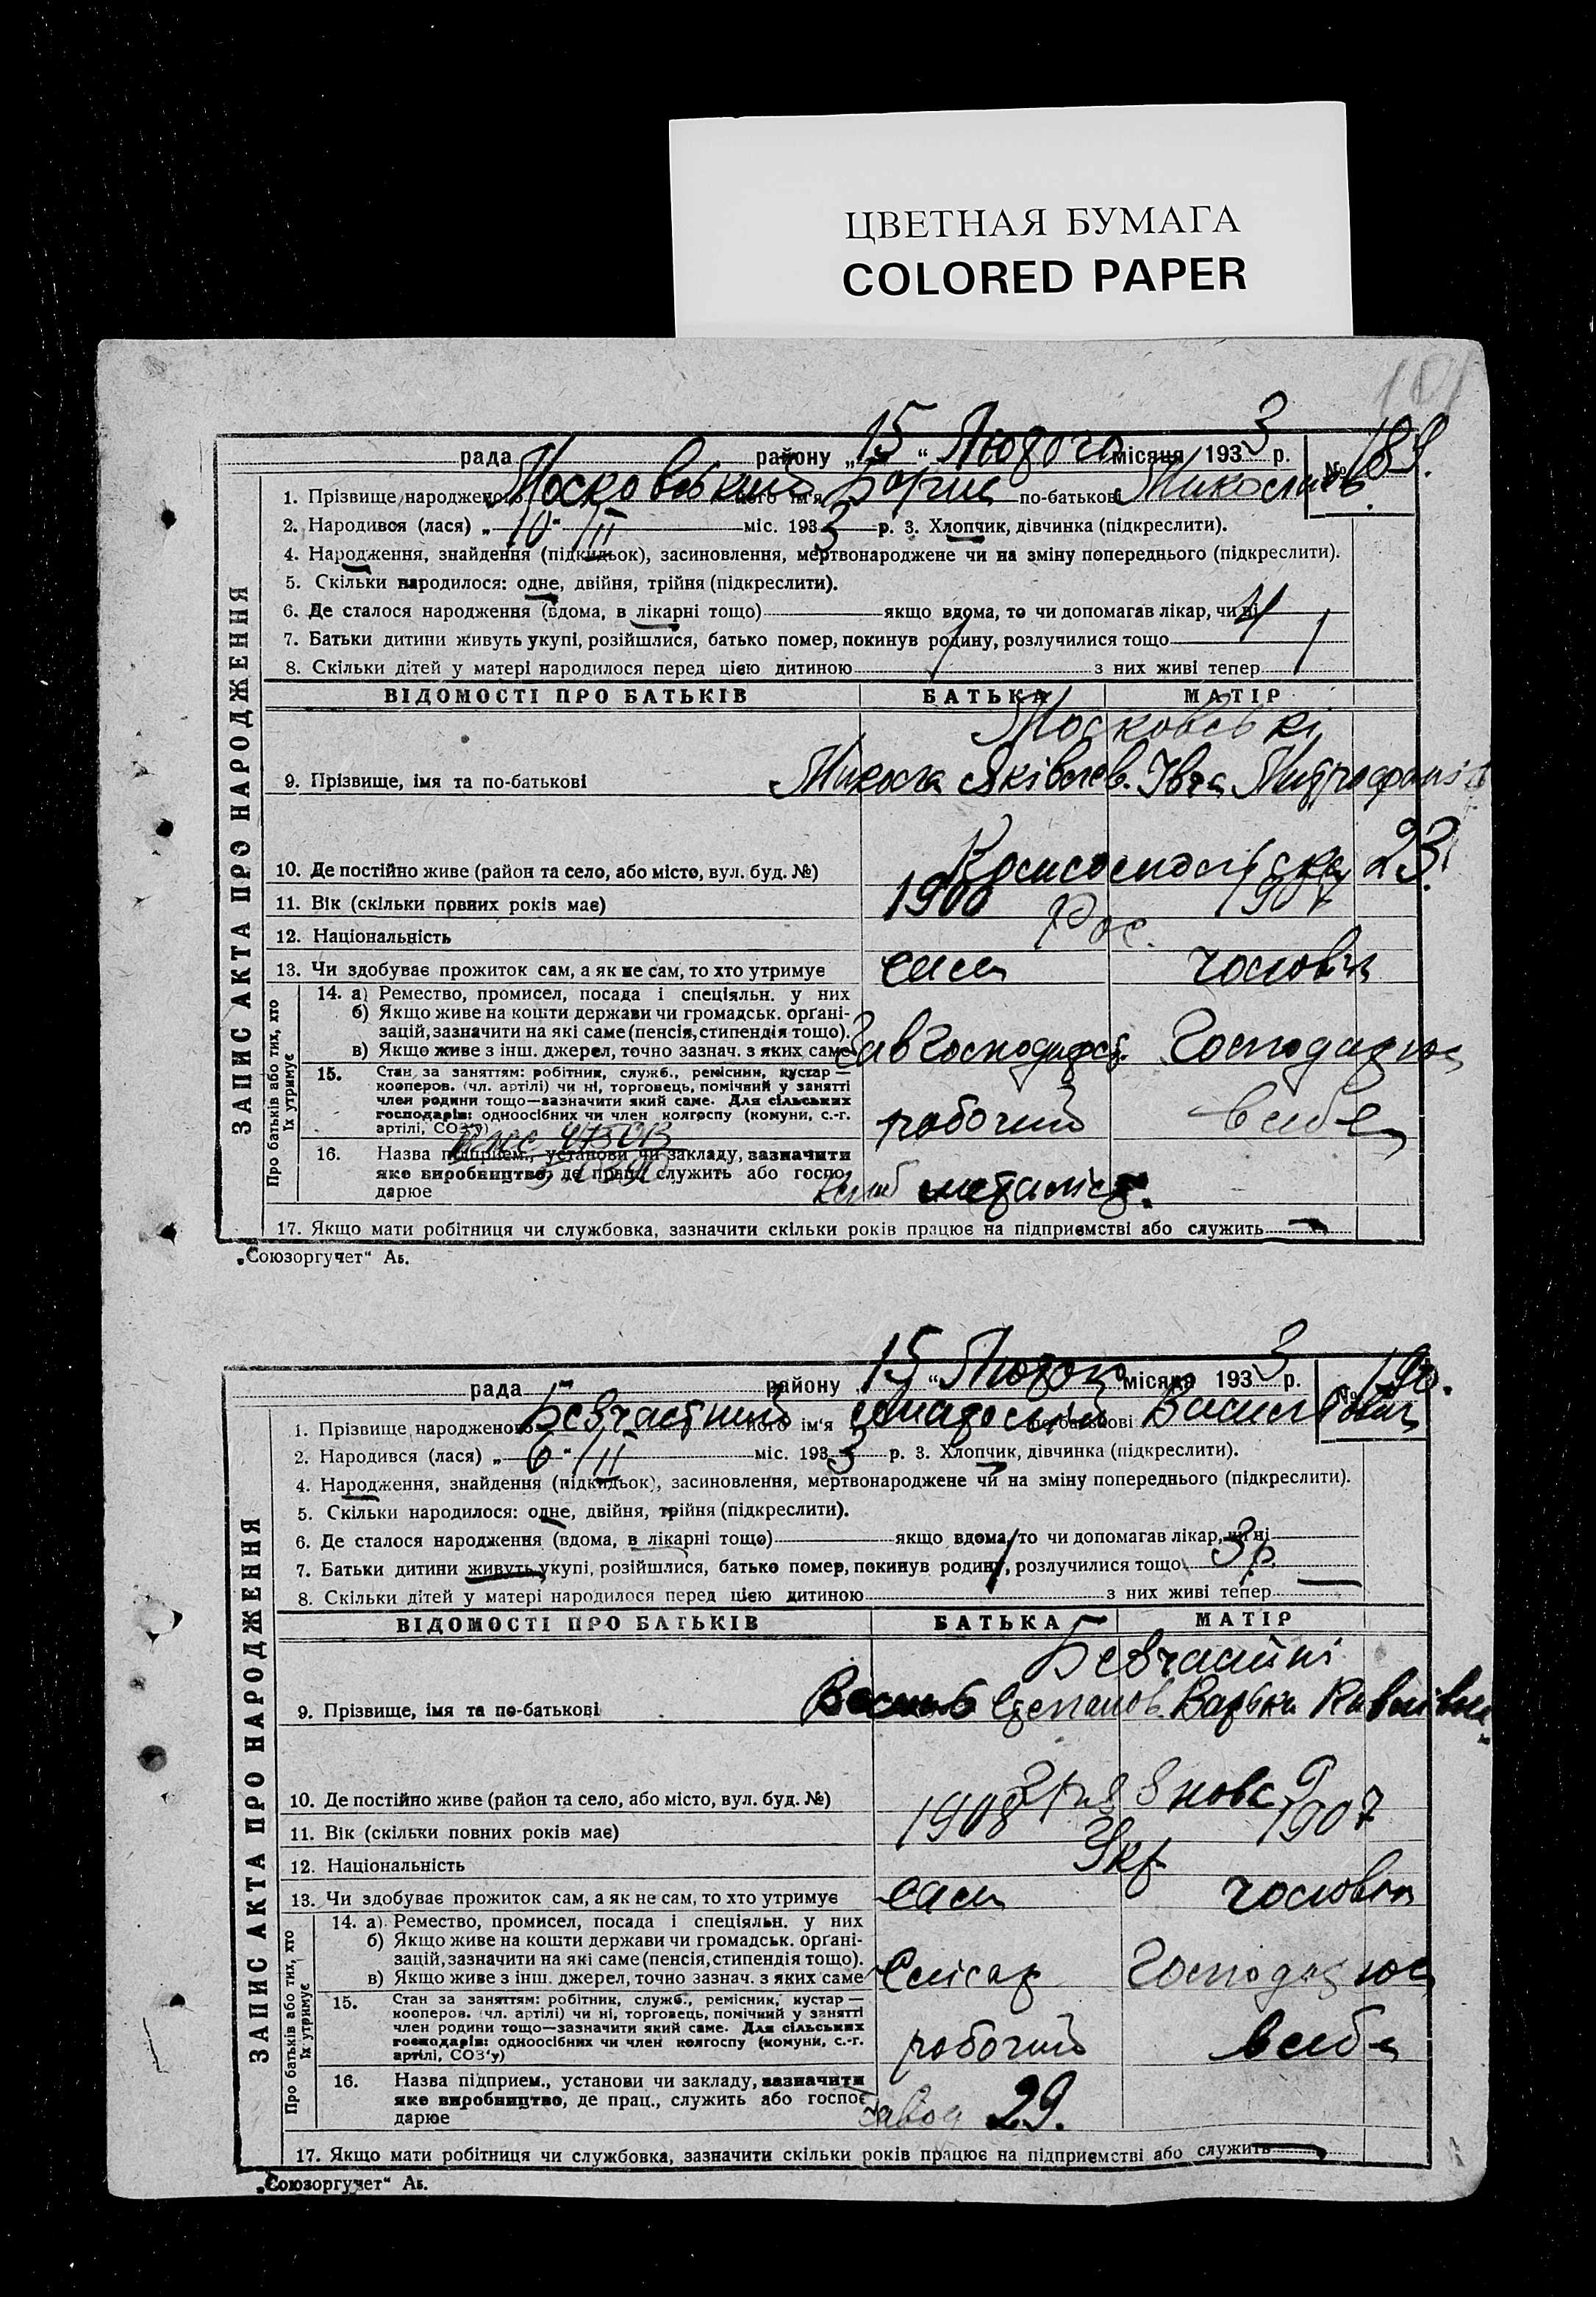 ЦВЕТНАЯ БУМАГА
COLORED PAPER
ЗАПИС АКТА ПРО НАРОДЖЕННЯ
рада району „15“ Лютого місяця 1933 р. № 189.
1. Прізвище народженого Московський його ім'я Борис по-батькові Миколаїв
2. Народився (лася) „10“ II міс. 1933 р. 3. Хлопчик, дівчинка (підкреслити).
4. Народження, знайдення (підкидьок), засиновлення, мертвонароджене чи на зміну попереднього (підкреслити).
5. Скільки народилося: одне, двійня, трійня (підкреслити).
6. Де сталося народження (вдома, в лікарні тощо) якщо вдома, то чи допомагав лікар, чи ні
7. Батьки дитини живуть укупі, розійшлися, батько помер, покинув родину, розлучилися тощо
8. Скільки дітей у матері народилося перед цією дитиною 1 з них живі тепер 1
ВІДОМОСТІ ПРО БАТЬКІВ БАТЬКА МАТІР
Московські
9. Прізвище, імя та по-батькові Микола Яківлев. Митрофанів
10. Де постійно живе (район та село, або місто, вул. буд. №) 23.
11. Вік (скільки повних років має) 1906 1907
12. Національність Рос.
13. Чи здобуває прожиток сам, а як не сам, то хто утримує сам чоловік
Про батьків або тих, хто їх утримує
14. а) Ремество, промисел, посада і спеціяльн. у них
б) Якщо живе на кошти держави чи громадськ. орґані-
зацій, зазначити на які саме (пенсія, стипендія тощо).
в) Якщо живе з інш. джерел, точно зазнач. з яких саме Завгосподарст. Господарює
15. Стан за заняттям: робітник, служб., ремісник, кустар —
кооперов. (чл. артілі) чи ні, торговець, помічний у занятті
член родини тощо—зазначити який саме. Для сільських
господарів: одноосібних чи член колгоспу (комуни, с.-г.
артілі, СОЗ'у) робочий в себе
16. Назва підприєм., установи чи закладу, зазначити
яке виробництво, де прац., служить або госпо-
дарюе клуб металіст.
17. Якщо мати робітниця чи службовка, зазначити скільки років працює на підприємстві або служить
„Союзоргучет“ Аб.
ЗАПИС АКТА ПРО НАРОДЖЕННЯ
рада району „15“ Лютого місяця 1933 р. № 190.
1. Прізвище народженого Безчастний його ім'я Анатолій по-батькові Васильович
2. Народився (лася) „6“ II міс. 1933 р. 3. Хлопчик, дівчинка (підкреслити).
4. Народження, знайдення (підкидьок), засиновлення, мертвонароджене чи на зміну попереднього (підкреслити).
5. Скільки народилося: одне, двійня, трійня (підкреслити).
6. Де сталося народження (вдома, в лікарні тощо) якщо вдома, то чи допомагав лікар, чи ні
7. Батьки дитини живуть укупі, розійшлися, батько помер, покинув родину, розлучилися тощо 3 р.
8. Скільки дітей у матері народилося перед цією дитиною з них живі тепер
ВІДОМОСТІ ПРО БАТЬКІВ БАТЬКА МАТІР
Безчастні
9. Прізвище, імя та по-батькові Василь Степанов. Варвара
10. Де постійно живе (район та село, або місто, вул. буд. №)
11. Вік (скільки повних років має) 1908 1907
12. Національність Укр
13. Чи здобуває прожиток сам, а як не сам, то хто утримує сам чоловік
Про батьків або тих, хто їх утримує
14. а) Ремество, промисел, посада і спеціяльн. у них
б) Якщо живе на кошти держави чи громадськ. орґані-
зацій, зазначити на які саме (пенсія, стипендія тощо).
в) Якщо живе з інш. джерел, точно зазнач. з яких саме Слюсар Господарює
15. Стан за заняттям: робітник, служб., ремісник, кустар —
кооперов. чл. артілі) чи ні, торговець, помічний у занятті
член родини тощо—зазначити який саме. Для сільських
господарів: одноосібних чи член колгоспу (комуни, с.-г.
артілі, СОЗ'у) робочий в себе
16. Назва підприєм., установи чи закладу, зазначити
яке виробництво, де прац., служить або госпо-
дарюе завод 29.
17. Якщо мати робітниця чи службовка, зазначити скільки років працює на підприємстві або служить
„Союзоргучет“ Аб.